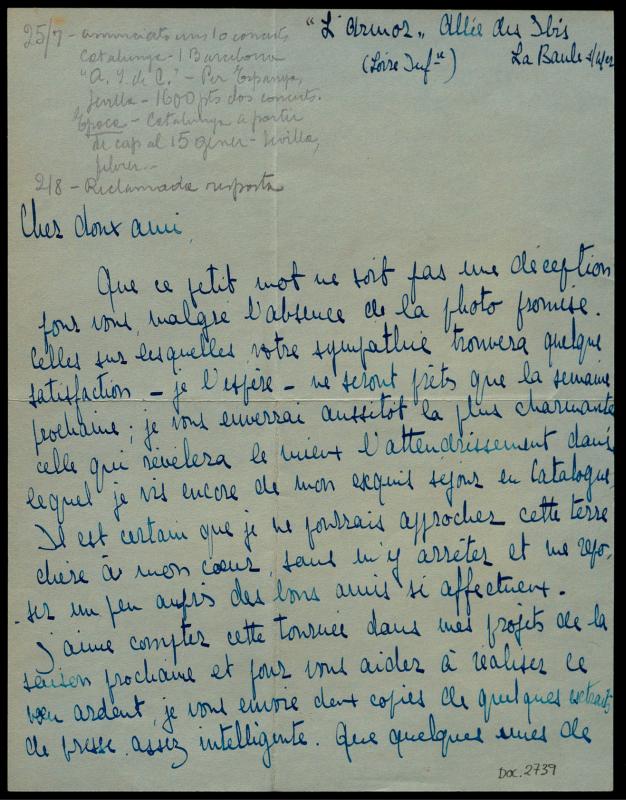 25/7 - anunciats uns 10 concerts
Catalunya - 1 Barcelona
"A. I. de C." - Per Espanya,
Sevilla - 1600 pts dos concerts.
Epoca - Catalunya a partir
de cap al 15 gener - Sevilla,
febrer -
2/8 - Reclamada resposta
"L'Armor" Allée des Ibis
(Loire Infre)
La Baule
Cher doux ami,
Que ce petit mot ne soit pas une déception
pour vous, malgré l'absence de la photo promise.
Celles sur lesquelles votre sympathie trouvera quelque
satisfaction - je l'espère - ne seront prêts que la semaine
prochaine ; je vous enverrai aussitôt la plus charmante
celle qui révèlera le mieux l'attendrissement dans
lequel je vis encore de mon exquis séjour en Catalogne
Il est certain que je ne pourrais approcher cette terre
chère à mon coeur, sans m'y arrêter et me repo-
-ser un peu auprès des bons amis si affectueux.
J'aime compter cette tournée dans mes projets de la
saison prochaine et pour vous aider à réaliser ce
voeu ardent, je vous envoie deux copies de quelques extraits
de presse assez intelligente. Que quelques unes de
Doc. 2739